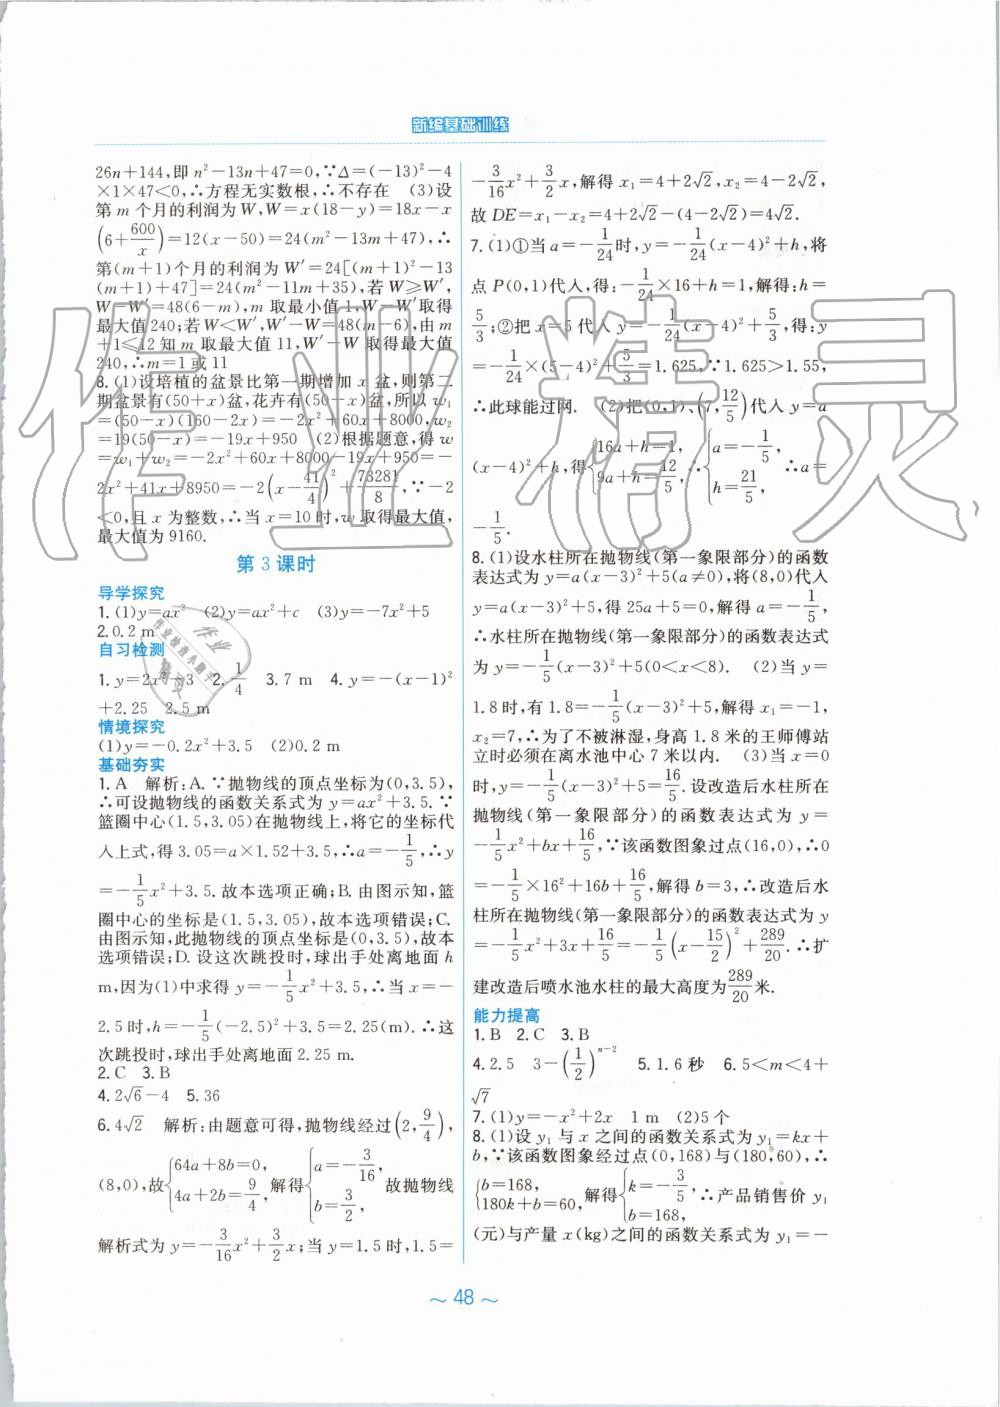 新编基础训练
26n+144,即 n²-13n+47=0,∵Δ=(-13)²-4
×1×47<0,∴方程无实数根,∴不存在 (3)设
第 m 个月的利润为 W,W=x(18-y)=18x-x
(6+600/x)=12(x-50)=24(m²-13m+47),∴
第(m+1)个月的利润为 W′=24[(m+1)²-13
(m+1)+47]=24(m²-11m+35),若 W≥W′,
W-W′=48(6-m),m 取最小值 1,W-W′取得
最大值240;若 W<W′,W′-W=48(m-6),由 m
+1≤12 知 m 取最大值 11,W′-W 取得最大值
240,∴m=1 或 11
8.(1)设培植的盆景比第一期增加 x 盆,则第二
期盆景有(50+x)盆,花卉有(50-x)盆,∴w₁
=(50-x)(160-2x)=-2x²+60x+8000,w₂
=19(50-x)=-19x+950 (2)根据题意,得 w
=w₁+w₂=-2x²+60x+8000-19x+950=-
2x²+41x+8950=-2(x-41/4)²+73281/8,∵-2
<0,且 x 为整数,∴当 x=10 时,w 取得最大值,
最大值为 9160.
第 3 课时
导学探究
1.(1)y=ax² (2)y=ax²+c (3)y=-7x²+5
2.0.2 m
自习检测
1.y=2x²+3 2.1/4 3.7 m 4.y=-(x-1)²
+2.25 2.5 m
情境探究
(1)y=-0.2x²+3.5 (2)0.2 m
基础夯实
1.A 解析:A.∵抛物线的顶点坐标为(0,3.5),
∴可设抛物线的函数关系式为 y=ax²+3.5.∵
篮圈中心(1.5,3.05)在抛物线上,将它的坐标代
入上式,得 3.05=a×1.52+3.5,∴a=-1/5,∴y
=-1/5x²+3.5.故本选项正确;B.由图示知,篮
圈中心的坐标是(1.5,3.05),故本选项错误;C.
由图示知,此抛物线的顶点坐标是(0,3.5),故本
选项错误;D.设这次跳投时,球出手处离地面 h
m,因为(1)中求得 y=-1/5x²+3.5,∴当 x=-
2.5时,h=-1/5(-2.5)²+3.5=2.25(m).∴这
次跳投时,球出手处离地面 2.25 m.
2.C 3.B
4.2√6-4 5.36
6.4√2 解析:由题意可得,抛物线经过(2,9/4),
(8,0),故{64a+8b=0, 4a+2b=9/4, 解得{a=-3/16 b=3/2, 故抛物线
解析式为 y=-3/16x²+3/2x;当 y=1.5 时,1.5=
-3/16x²+3/2x,解得 x₁=4+2√2,x₂=4-2√2,
故 DE=x₁-x₂=4+2√2-(4-2√2)=4√2.
7.(1)①当 a=-1/24时,y=-1/24(x-4)²+h,将
点 P(0,1)代入,得:-1/24×16+h=1,解得:h=
5/3;②把 x=5 代入 y=-1/24(x-4)²+5/3,得:y
=-1/24×(5-4)²+5/3=1.625,∵1.625>1.55,
∴此球能过网. (2)把(0,1)、(7,12/5)代入 y=a
(x-4)²+h,得{16a+h=1, 9a+h=12/5 ∴{a=-1/5, h=21/5, ∴a=
-1/5.
8.(1)设水柱所在抛物线(第一象限部分)的函数
表达式为 y=a(x-3)²+5(a≠0),将(8,0)代入
y=a(x-3)²+5,得:25a+5=0,解得:a=-1/5,
∴水柱所在抛物线(第一象限部分)的函数表达式
为 y=-1/5(x-3)²+5(0<x<8). (2)当 y=
1.8 时,有 1.8=-1/5(x-3)²+5,解得 x₁=-1,
x₂=7,∴为了不被淋湿,身高 1.8 米的王师傅站
立时必须在离水池中心 7 米以内. (3)当 x=0
时,y=-1/5(x-3)²+5=16/5.设改造后水柱所在
抛物线(第一象限部分)的函数表达式为 y=
-1/5x²+bx+16/5,∵该函数图象过点(16,0),∴0
=-1/5×16²+16b+16/5,解得 b=3,∴改造后水
柱所在抛物线(第一象限部分)的函数表达式为 y
=-1/5x²+3x+16/5=-1/5(x-15/2)²+289/20.∴扩
建改造后喷水池水柱的最大高度为289/20米.
能力提高
1.B 2.C 3.B
4.2.5 3-(1/2)ⁿ⁻² 5.1.6秒 6.5<m<4+
√7
7.(1)y=-x²+2x 1 m (2)5 个
8.(1)设 y₁ 与 x 之间的函数关系式为 y₁=kx+
b,∵该函数图象经过点(0,168)与(180,60),∴
{b=168, 180k+b=60, 解得{k=-3/5, b=168, ∴产品销售价 y₁
(元)与产量 x(kg)之间的函数关系式为 y₁=-
～ 48 ～
作业精灵